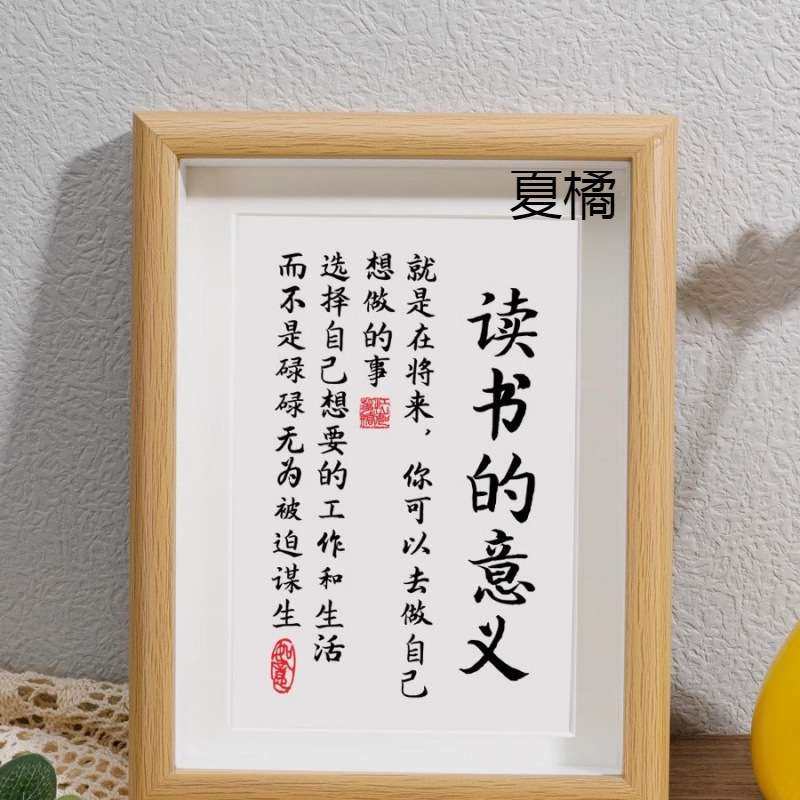 夏橘
读书的意义
就是在将来，你可以去做自己
想做的事
选择自己想要的工作和生活
而不是碌碌无为被迫谋生
如意